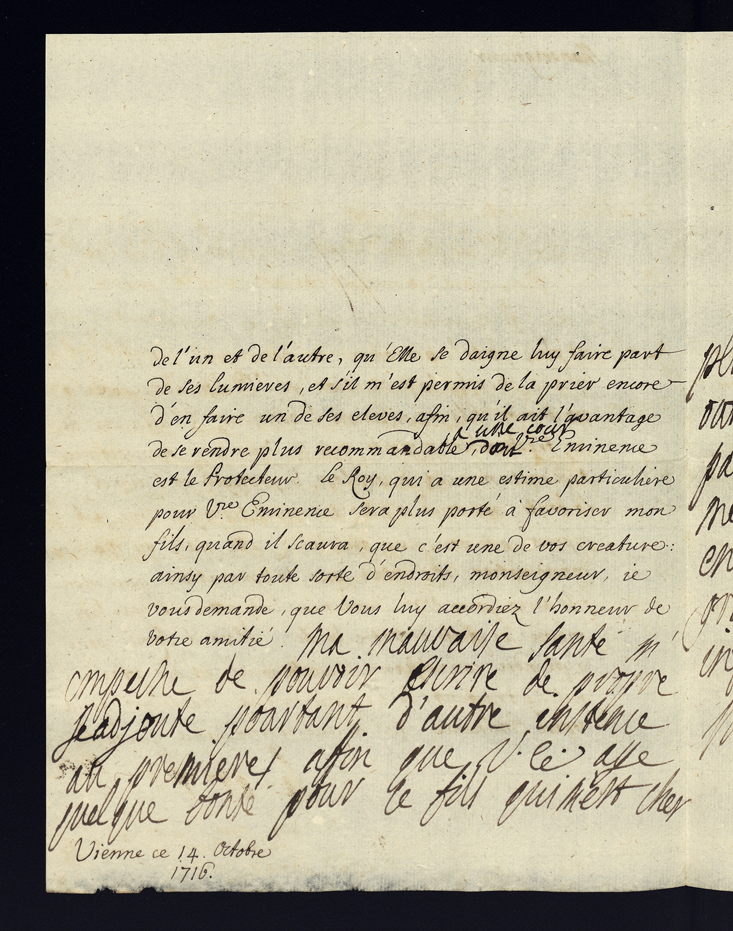 de l'un et de l'autre, qu'Elle se daigne luy faire part
de ses lumieres, et s'il m'est permis de la prier encore
d'en faire un de ses eleves, afin, qu'il ait l'avantage
à une cour
de se rendre plus recommandable, dont Vre. Eminence
est le Protecteur. Le Roy, qui a une estime particuliere
pour Vre. Eminence sera plus porté à favoriser mon
fils, quand il scaura, que c'est une de vos creature:
ainsy par toute sorte d'endroits, monseigneur, ie
vous demande, que Vous luy accordiez l'honneur de
votre amitié. Ma mauvaise santé m'
empeche de pouvoir Escrire de propre
Jeadjoute pourtant d'autre instence
au premieres affin que V. E. aye
quelque bonte pour le fils qui mest cher
Vienne ce 14. Octobre
1716.